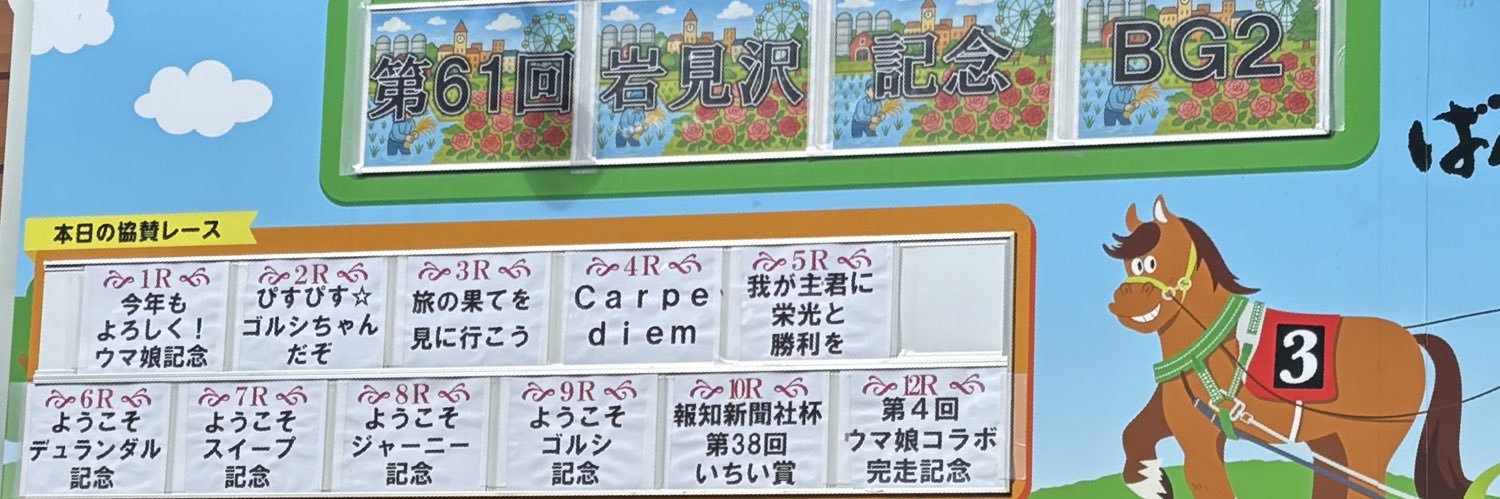 第61回 岩見沢 記念 BG2
ば
本日の協賛レース
1R
今年も
よろしく!
ウマ娘記念
2R
ぴすぴす☆
ゴルシちゃん
だぞ
3R
旅の果てを
見に行こう
4R
Carpe
diem
5R
我が主君に
栄光と
勝利を
6R
ようこそ
デュランダル
記念
7R
ようこそ
スイープ
記念
8R
ようこそ
ジャーニー
記念
9R
ようこそ
ゴルシ
記念
10R
報知新聞社杯
第38回
いちい賞
12R
第4回
ウマ娘コラボ
完走記念
3